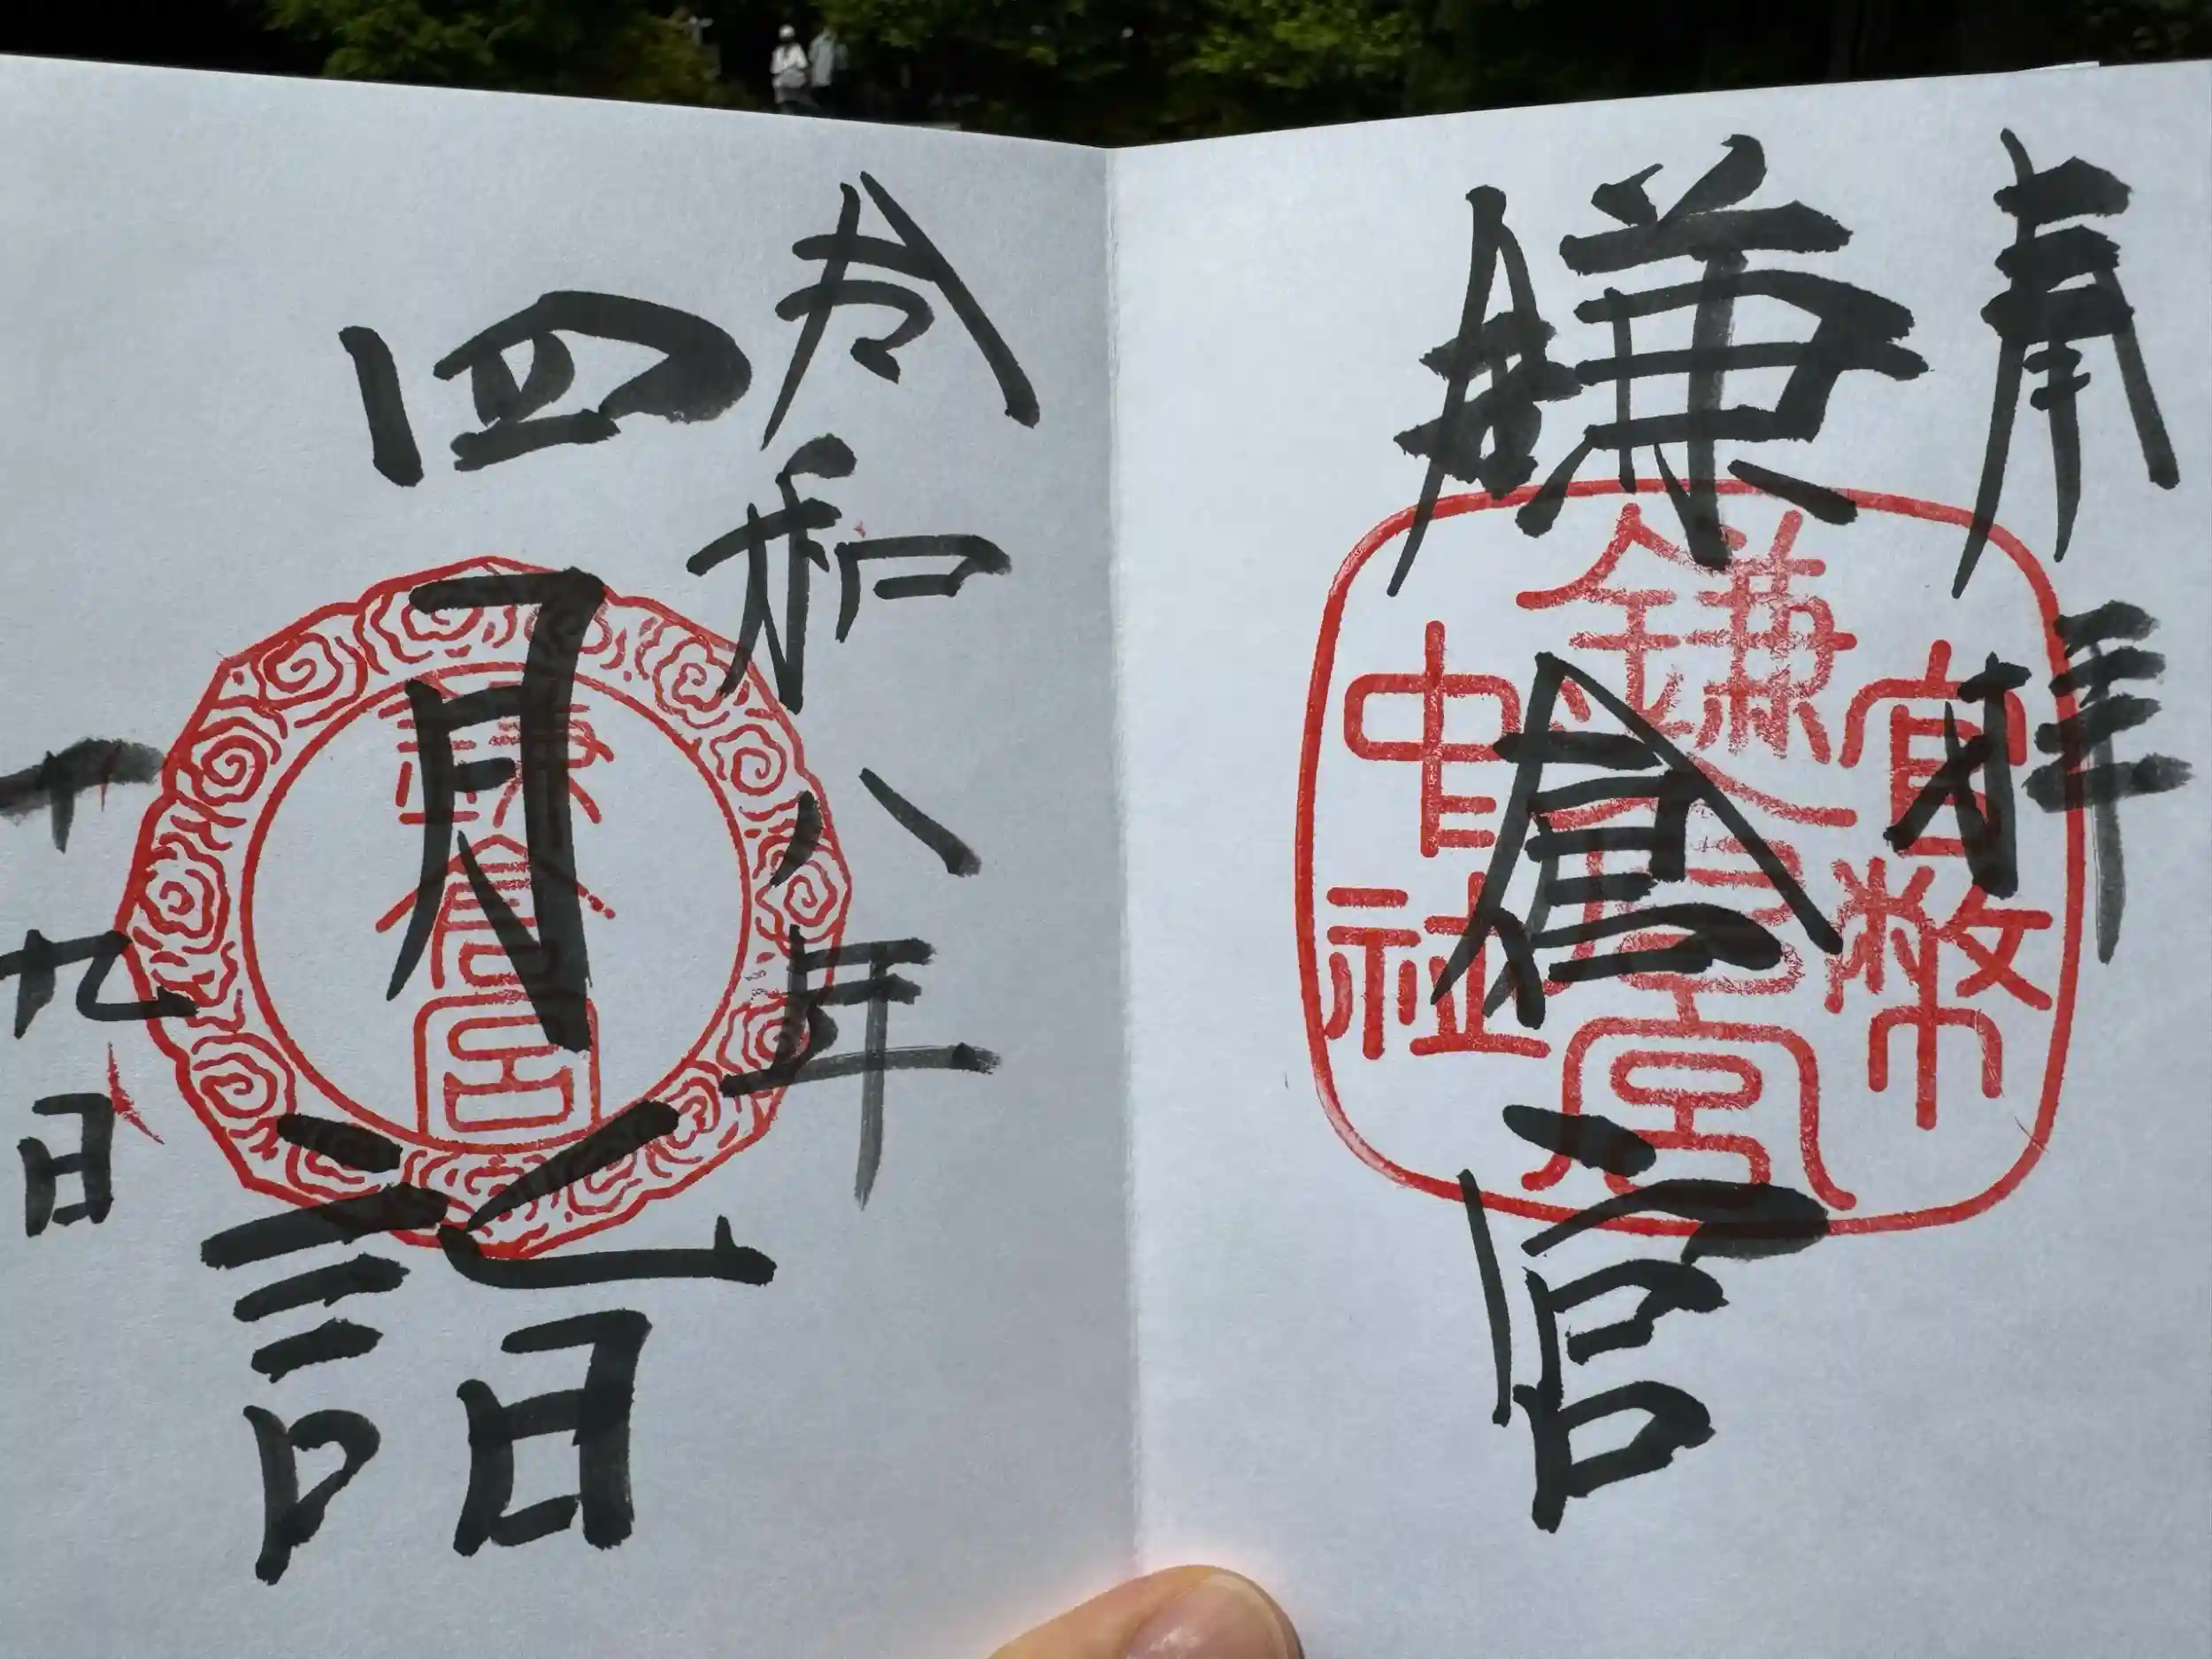 奉拝
鎌倉宮
官幣
鎌倉宮
中社
令和八年
四月詣
鎌倉宮
十九日